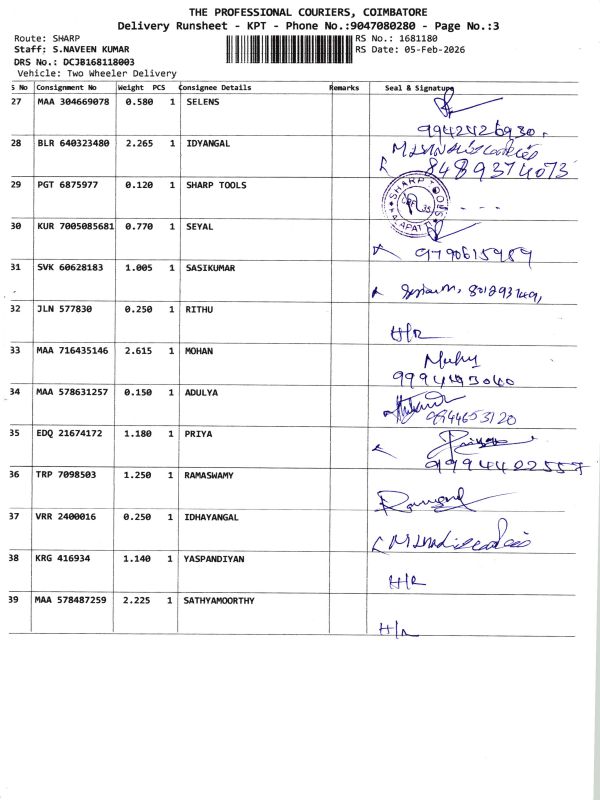 THE PROFESSIONAL COURIERS, COIMBATORE
Delivery Runsheet - KPT - Phone No.:9047080280 - Page No.:3
Route: SHARP
RS No.: 1681180
Staff: S.NAVEEN KUMAR
RS Date: 05-Feb-2026
DRS No.: DCJB168118003
Vehicle: Two Wheeler Delivery
S No Consignment No Weight PCS Consignee Details Remarks Seal & Signature
27 MAA 304669078 0.580 1 SELENS
9942426930
28 BLR 640323480 2.265 1 IDYANGAL
8489374073
29 PGT 6875977 0.120 1 SHARP TOOLS
SHARP TOOLS
30 KUR 7005085681 0.770 1 SEYAL
9790615989
31 SVK 60628183 1.005 1 SASIKUMAR
32 JLN 577830 0.250 1 RITHU
H/R
33 MAA 716435146 2.615 1 MOHAN
34 MAA 578631257 0.150 1 ADULYA
9944653120
35 EDQ 21674172 1.180 1 PRIYA
9994422557
36 TRP 7098503 1.250 1 RAMASWAMY
37 VRR 2400016 0.250 1 IDHAYANGAL
38 KRG 416934 1.140 1 YASPANDIYAN
H/R
39 MAA 578487259 2.225 1 SATHYAMOORTHY
H/R